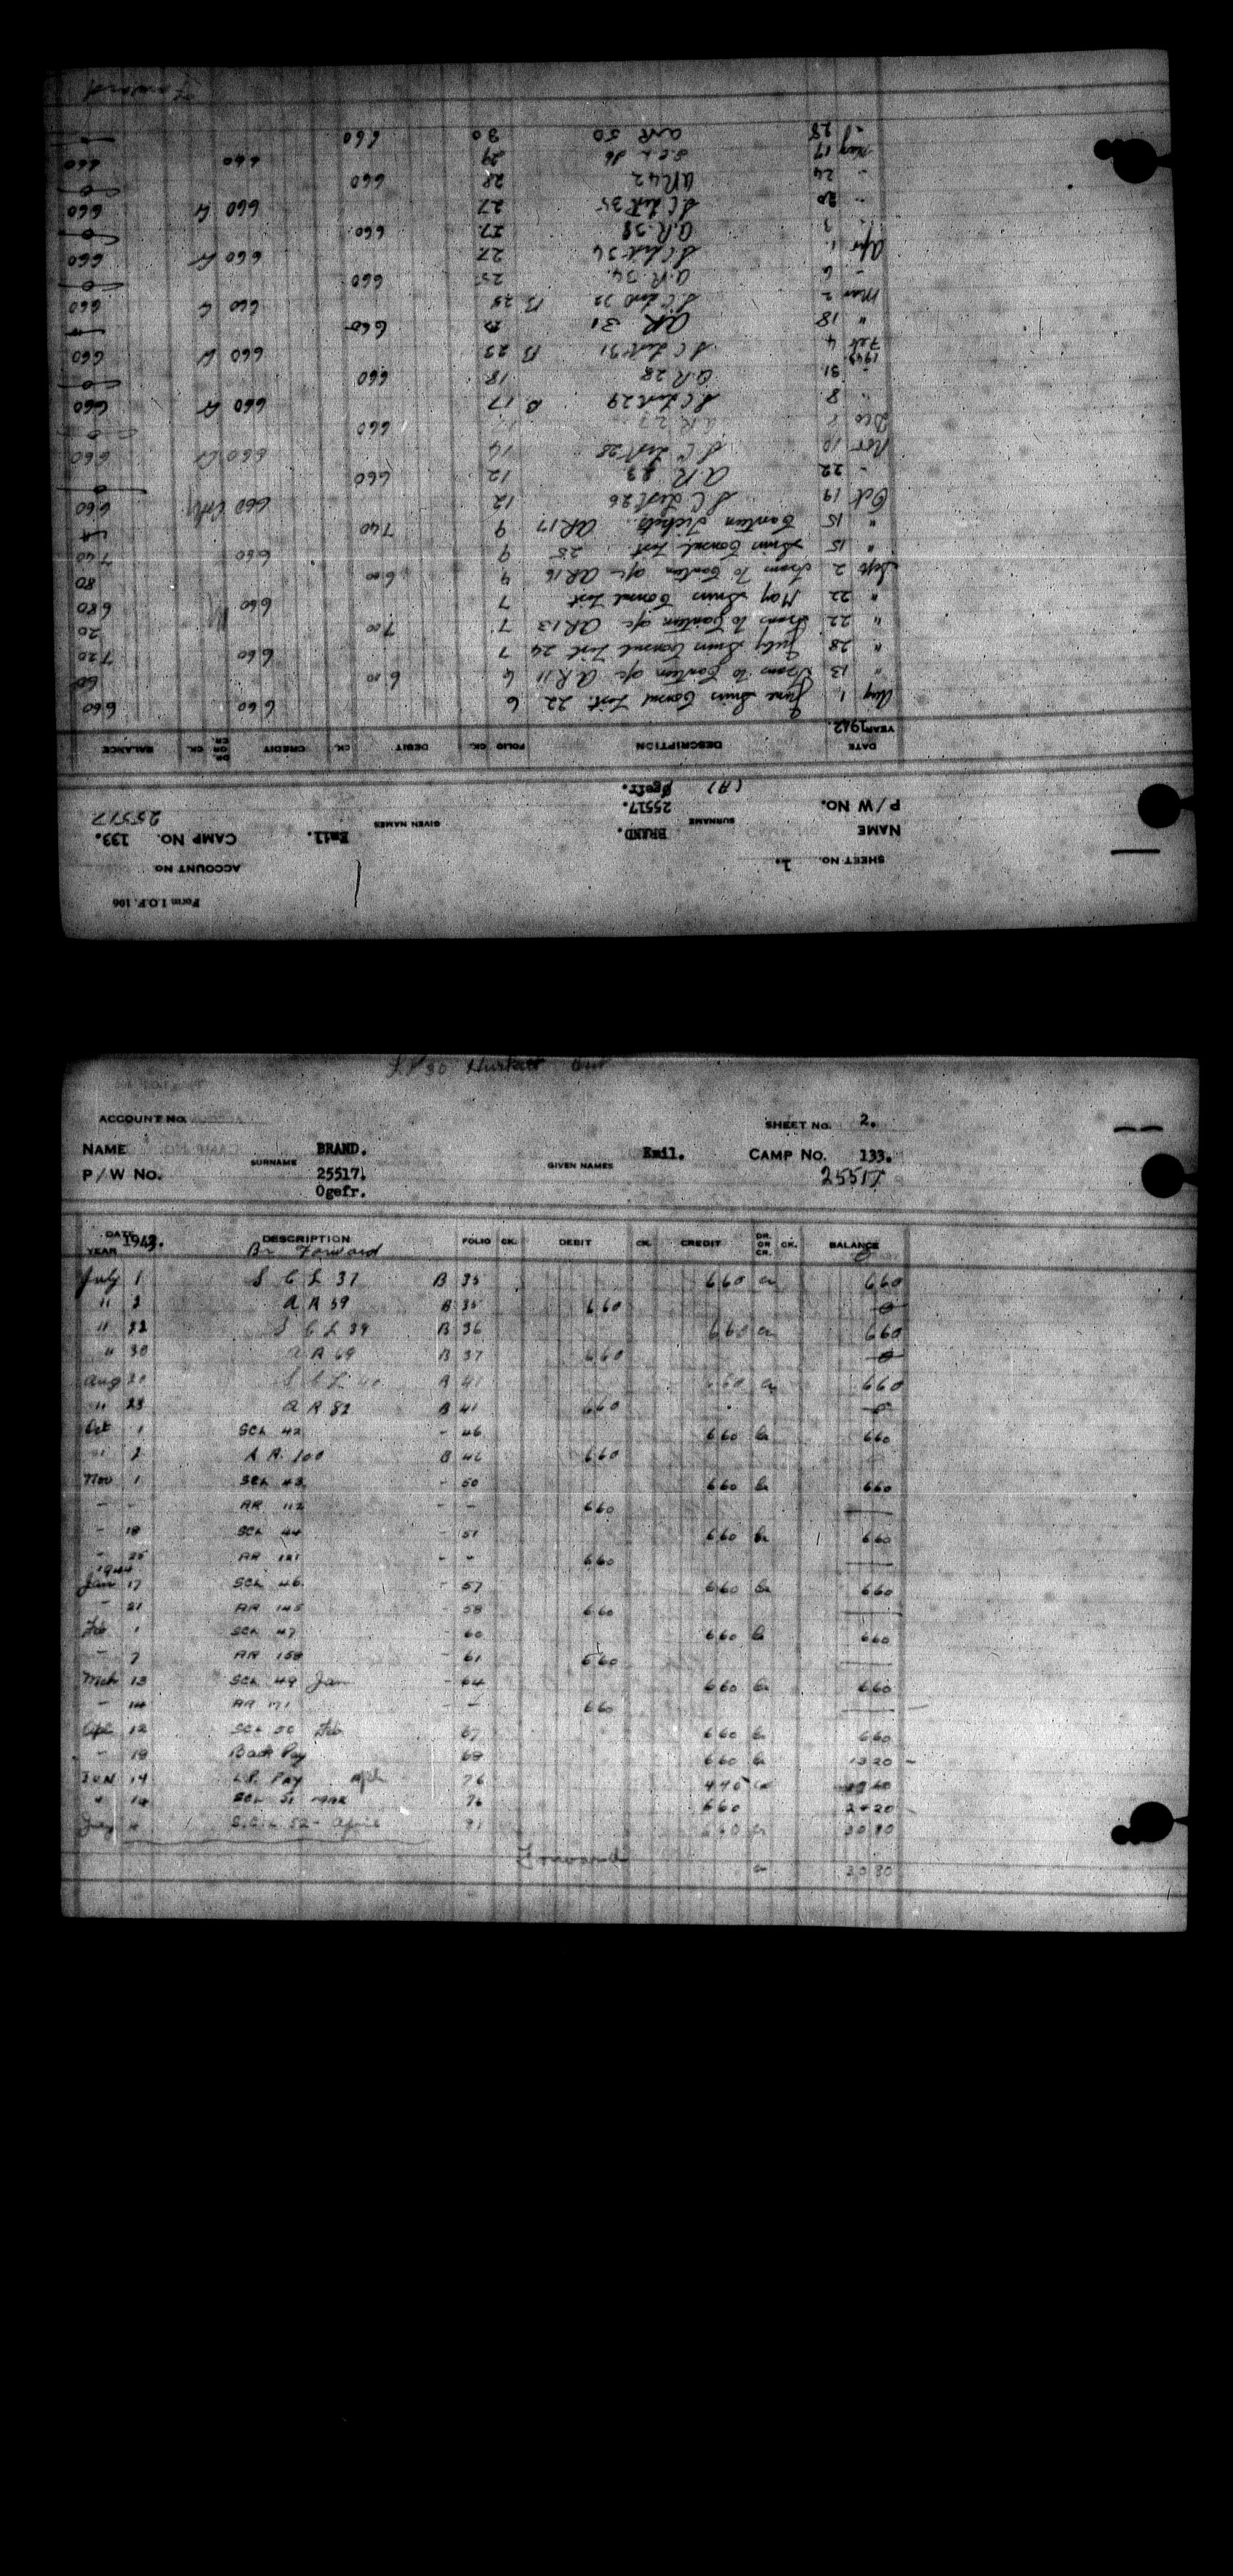 Form I.O.F. 106
ACCOUNT No
SHEET No. 1.
NAME BRAND. SURNAME Emil. GIVEN NAMES CAMP No. 133.
P/W No. 25517. 25517
(A) Ogefr.
DATE YEAR 1942. DESCRIPTION FOLIO CK. DEBIT CK. CREDIT DR. OR CR. CK. BALANCE
Aug 1 June Swiss Consul List 22 6 660 660
" 13 Trans to Canteen a/c AR 11 6 600 60
" 28 July Swiss Consul List 24 7 660 720
" 22 Trans to Canteen a/c AR 13 7 700 20
" 22 May Swiss Consul List 7 660 680
Sept 2 Trans To Canteen a/c AR 16 600 80
" 15 Swiss Consul List 25 9 660 740
" 15 Canteen Tickets. AR 17 9 740
Oct 19 S C List 26 12 660 660
- 22 A.R. 23 12 660 0
Nov 10 S C List 28 14 660 Cr 660
Dec AR 27 660 0
" 8 S C List 29 B 17 660 Cr 660
" 31 A.R. 28 18 660 0
1943
Feb 4 S C List 31 B 23 660 Cr 660
" 18 AR 31 660
Mar 2 S C List 32 B 25 660 660
- 6 A.R. 34 25 660 0
Apr 1 S C List 34 27 660 Cr 660
" 3 A.R. 38 27 660 0
- 20 S C List 35 27 660 Cr 660
- 24 AR 42 28 660 0
May 17 S.C.L 36 29 660 660
" 28 AR 50 30 660
Forward
ACCOUNT No.
SHEET No. 2.
NAME BRAND. SURNAME Emil. GIVEN NAMES CAMP No. 133.
P/W No. 25517. 25517
Ogefr.
DATE YEAR 1943. DESCRIPTION FOLIO CK. DEBIT CK. CREDIT DR. OR CR. CK. BALANCE
Br Forward 0
July 1 S C L 37 B 35 660 Cr 660
" 2 A R 59 B 35 660 0
" 22 S C L 39 B 36 660 Cr 660
" 30 A R 69 B 37 660 0
Aug 20 S C L 40 B 41 660 Cr 660
" 23 A R 82 B 41 660 0
Oct 1 SCL 42 - 46 660 Cr 660
" 2 A R. 100 B 46 660
Nov 1 SCL 43 - 50 660 Cr 660
- - AR 112 - - 660
- 18 SCL 44 - 51 660 Cr 660
- 25 AR 121 - - 660
1944
Jan 17 SCL 46 - 57 660 Cr 660
- 21 AR 145 - 58 660
Feb 1 SCL 47 - 60 660 Cr 660
- 7 AR 158 - 61 660
Mch 13 SCL 49 Jan - 64 660 Cr 660
- 14 AR 171 - 660
Apl 12 SCL 50 Feb 67 660 Cr 660
- 19 Back Pay 68 660 Cr 13 20
JUN 14 L.P. PAY Apl 76 4 40 Cr 17 60
" 14 SCL 51 MAR 76 660 24 20
July S.C.L 52 - April 81 660 Cr 30 80
Forward Cr 30 80